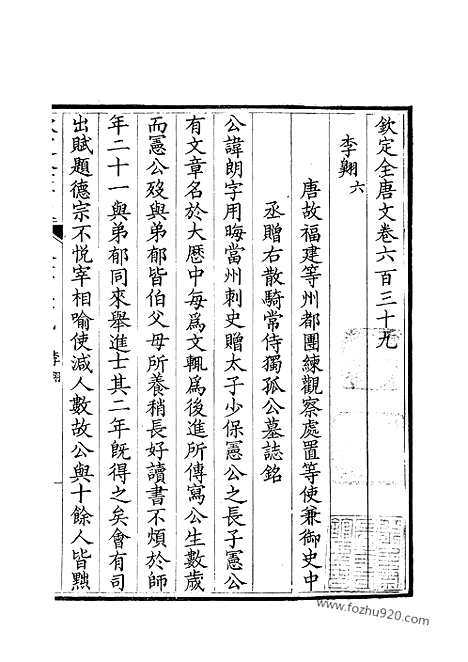 欽定全唐文卷六百三十九
李翺 六
唐故福建等州都團練觀察處置等使兼御史中
丞贈右散騎常侍獨孤公墓誌銘
公諱朗字用晦當州刺史贈太子少保憲公之長子憲公
有文章名於大厯中每爲文輒爲後進所傳寫公生數歲
而憲公歿與弟郁皆伯父母所養稍長好讀書不煩於師
年二十一與弟郁同來舉進士其二年旣得之矣會有司
出賦題德宗不悅宰相喻使減人數故公與十餘人皆黜
李翔
www.fozhu920.com